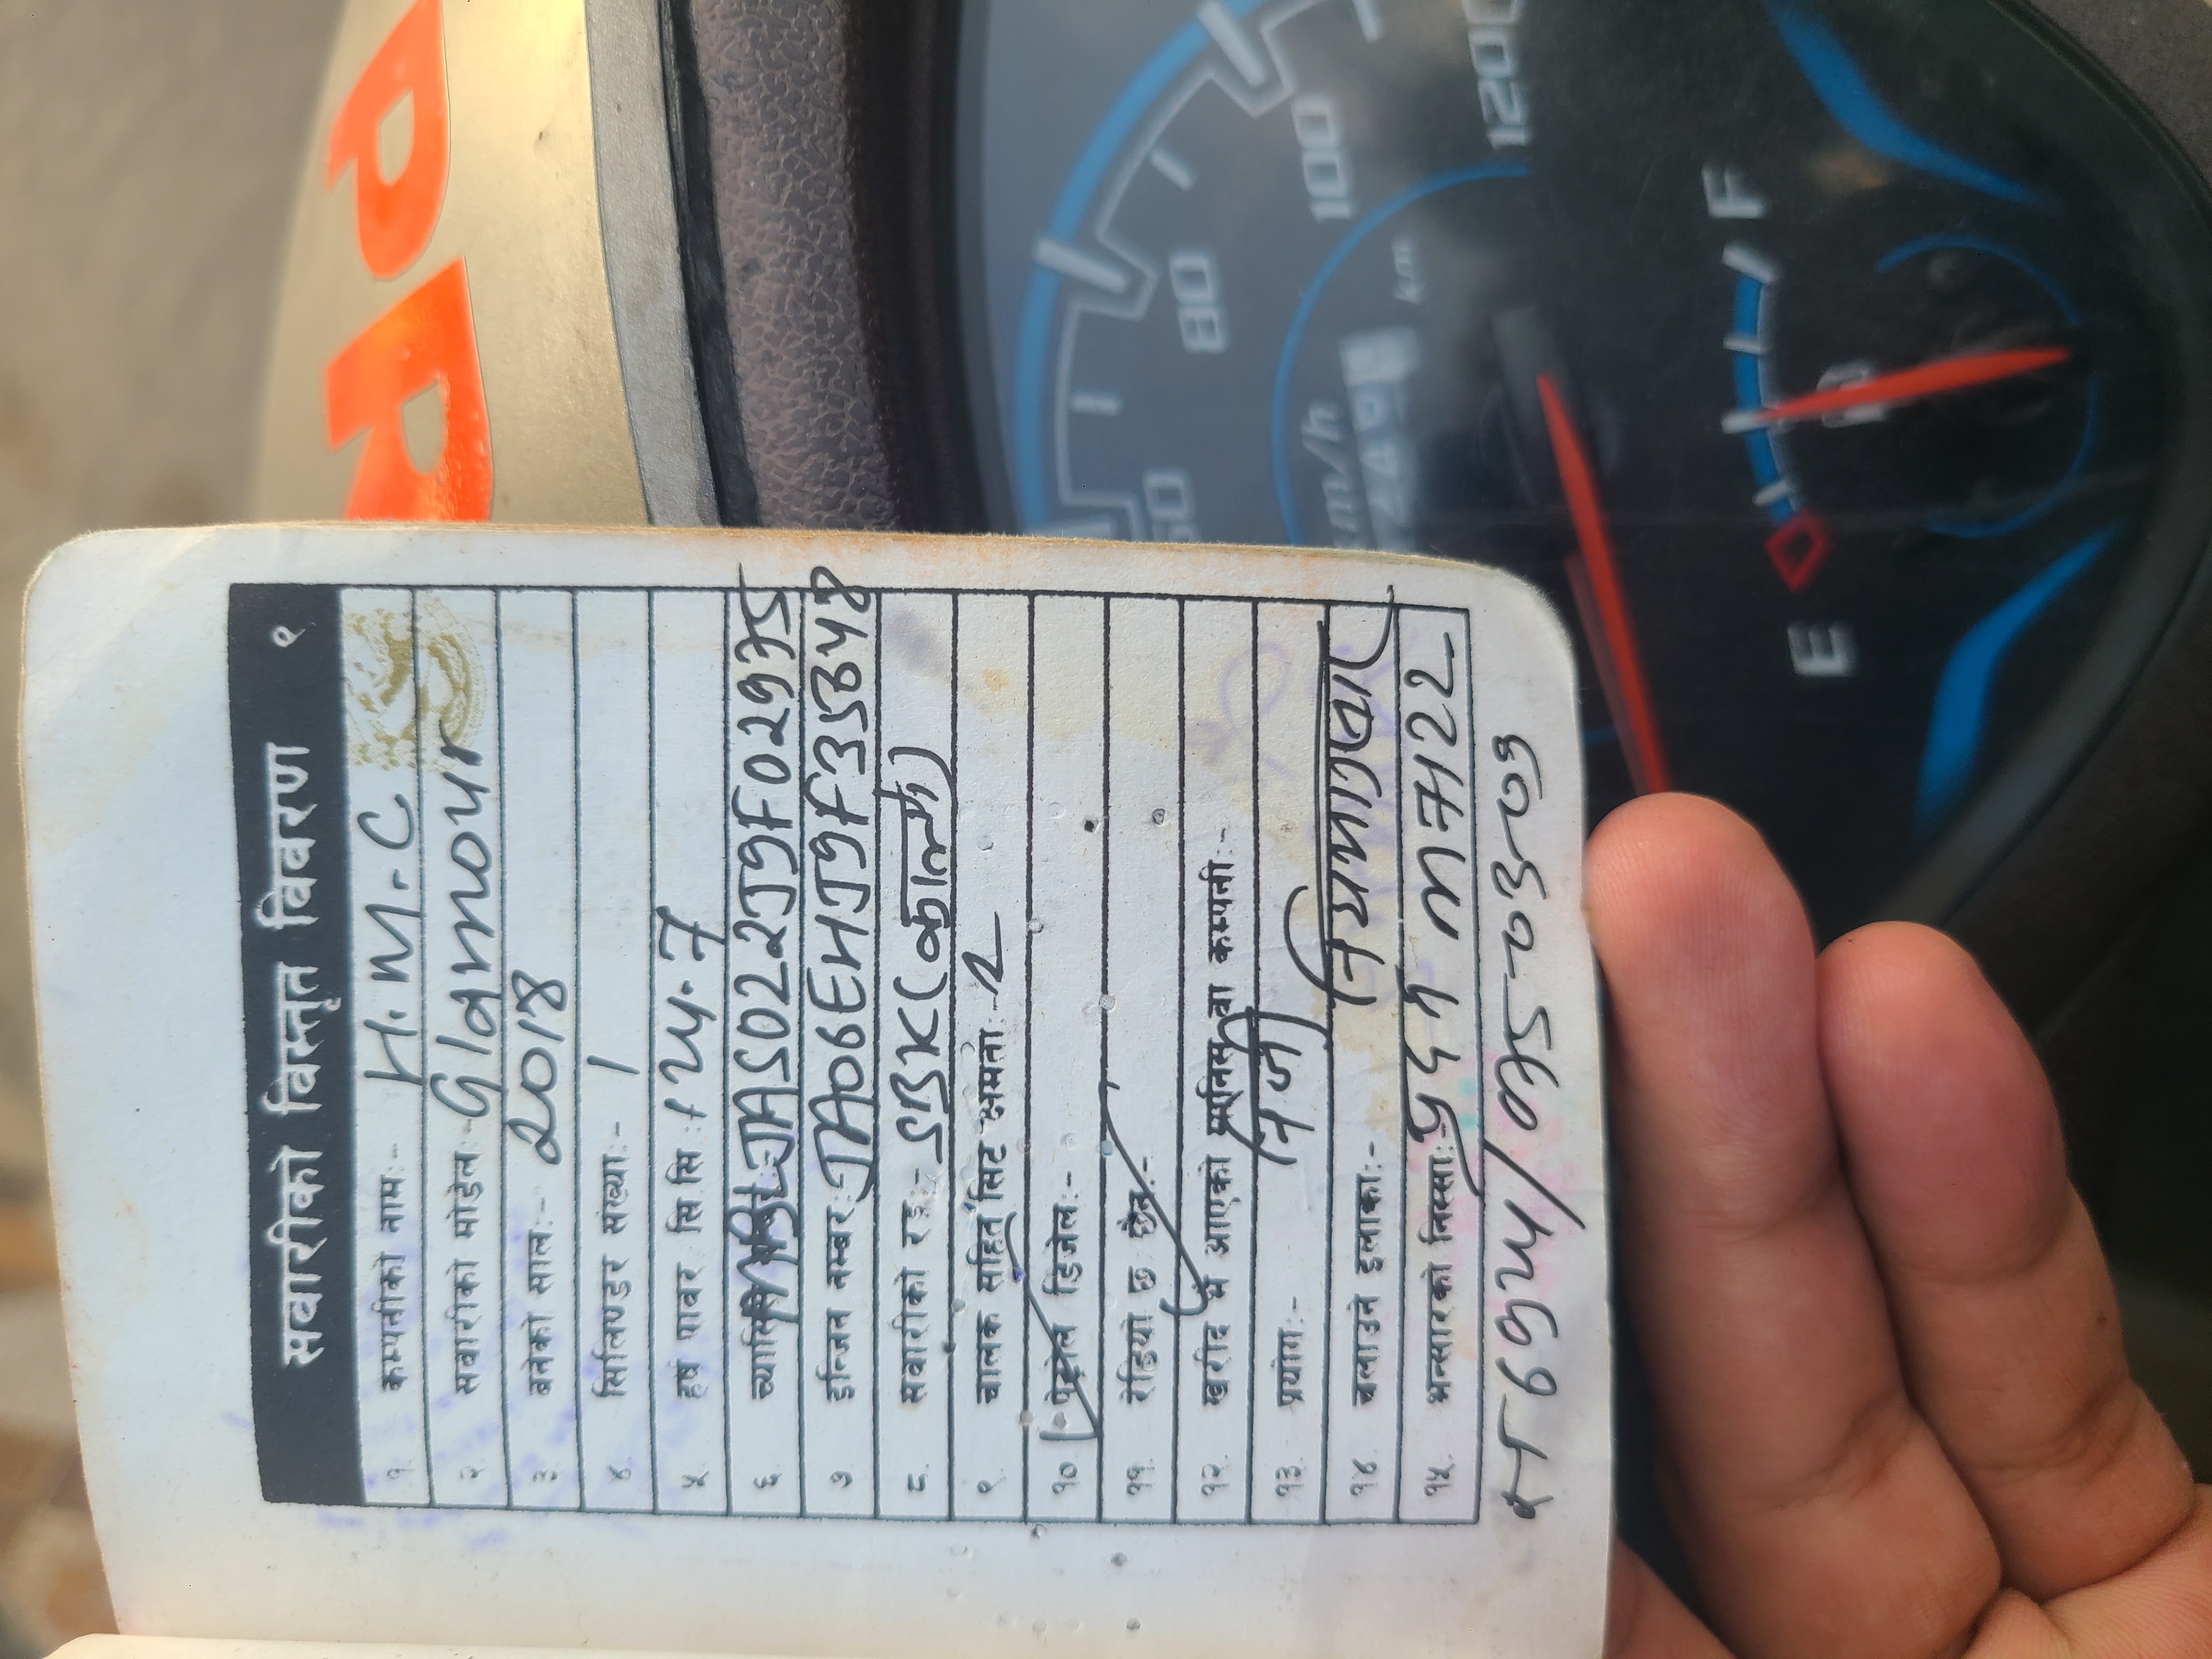 सवारीको विस्तृत विवरण ९
१. कम्पनीको नाम:- H.M.C
२. सवारीको मोडेल:- Glamour
३. बनेको साल:- 2018
४. सिलिण्डर संख्या:- 1
५. हर्ष पावर सि सि :- 124.7
६. MBLJAS022J9F02975
७. इन्जिन नम्बर:- JA06EHJ9F35648
८. सवारीको रङ:- SBK (कालो)
९. चालक सहित सिट क्षमता:- 2
१०. पेट्रोल डिजेल:-
११. रेडियो छ छैन:-
१२. खरीद भै आएको मानिस वा कम्पनी:-
१३. प्रयोग:- निजी
१४. चलाउने इलाका:- नियमानुसार
१५. भन्सारको निस्सा:- M7122
6924/075-03-09
PR
60
80
100
120
km/h
km
E
F